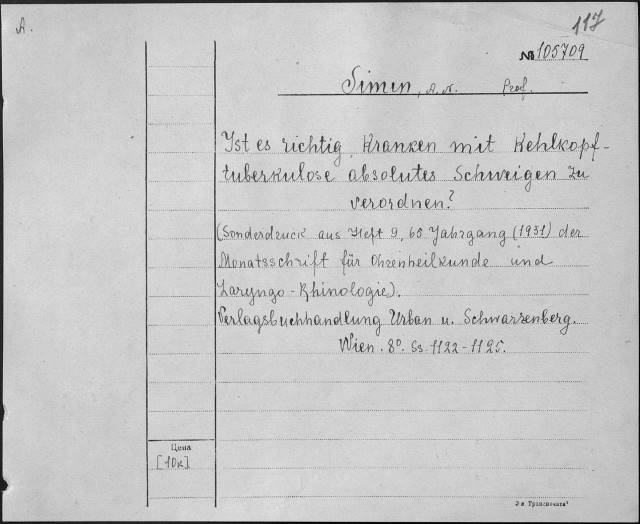 A.
117
№ 105709
Simin, A.N. Prof.
Ist es richtig, Kranken mit Kehlkopf-
tuberkulose absolutes Schweigen zu
verordnen?
(Sonderdruck aus Heft 9, 65 Jahrgang (1931) der
Monatsschrift für Ohrenheilkunde und
Laryngo-Rhinologie).
Verlagsbuchhandlung Urban u. Schwarzenberg.
Wien. 8°. Ss. 1122-1125.
Цена
[10к]